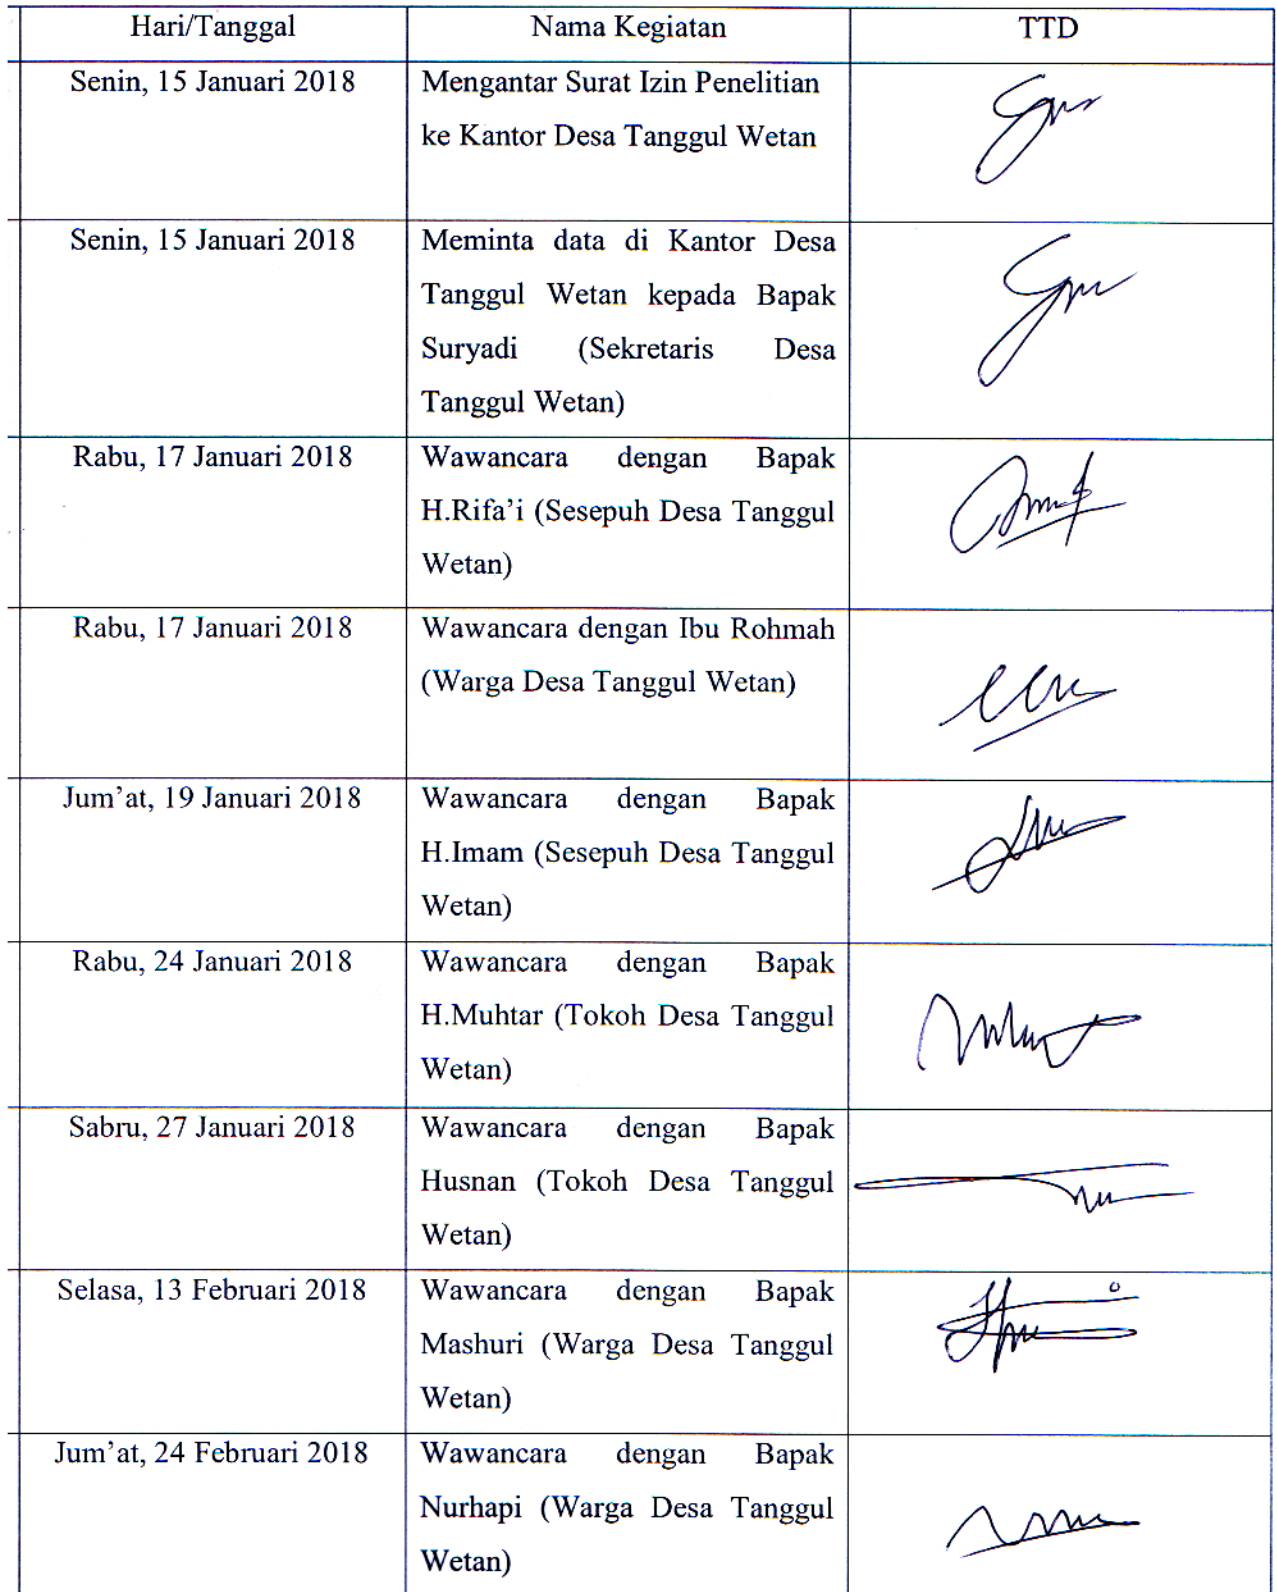 Hari/Tanggal Nama Kegiatan TTD
Senin, 15 Januari 2018 Mengantar Surat Izin Penelitian
ke Kantor Desa Tanggul Wetan
Senin, 15 Januari 2018 Meminta data di Kantor Desa
Tanggul Wetan kepada Bapak
Suryadi (Sekretaris Desa
Tanggul Wetan)
Rabu, 17 Januari 2018 Wawancara dengan Bapak
H.Rifa’i (Sesepuh Desa Tanggul
Wetan)
Rabu, 17 Januari 2018 Wawancara dengan Ibu Rohmah
(Warga Desa Tanggul Wetan)
Jum’at, 19 Januari 2018 Wawancara dengan Bapak
H.Imam (Sesepuh Desa Tanggul
Wetan)
Rabu, 24 Januari 2018 Wawancara dengan Bapak
H.Muhtar (Tokoh Desa Tanggul
Wetan)
Sabru, 27 Januari 2018 Wawancara dengan Bapak
Husnan (Tokoh Desa Tanggul
Wetan)
Selasa, 13 Februari 2018 Wawancara dengan Bapak
Mashuri (Warga Desa Tanggul
Wetan)
Jum’at, 24 Februari 2018 Wawancara dengan Bapak
Nurhapi (Warga Desa Tanggul
Wetan)